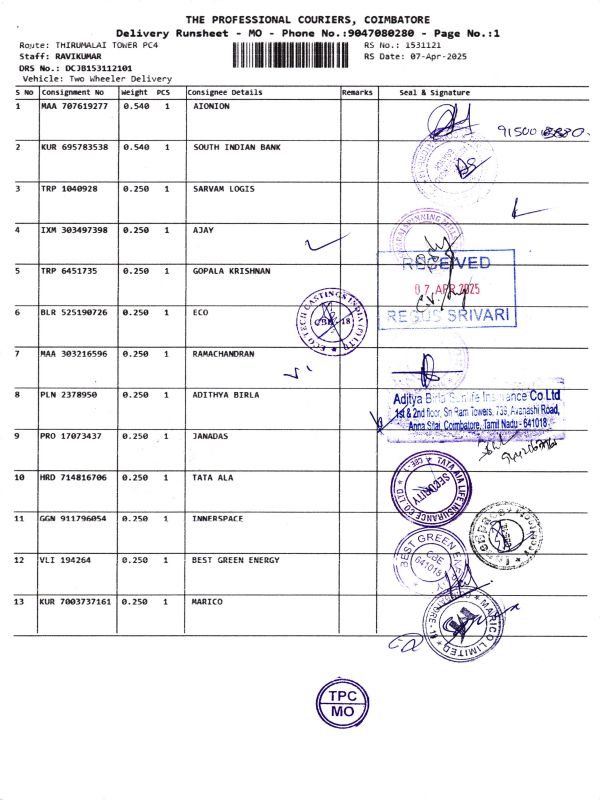 THE PROFESSIONAL COURIERS, COIMBATORE
Delivery Runsheet - MO - Phone No.:9047080280 - Page No.:1
Route: THIRUMALAI TOWER PC4 RS No.: 1531121
Staff: RAVIKUMAR RS Date: 07-Apr-2025
DRS No.: DCJB153112101
Vehicle: Two Wheeler Delivery
S NO Consignment No Weight PCS Consignee Details Remarks Seal & Signature
1 MAA 707619277 0.540 1 AIONION
2 KUR 695783538 0.540 1 SOUTH INDIAN BANK
3 TRP 1040928 0.250 1 SARVAM LOGIS
4 IXM 303497398 0.250 1 AJAY
5 TRP 6451735 0.250 1 GOPALA KRISHNAN
RECEIVED
07 APR 2025
REGUS SRIVARI
6 BLR 525190726 0.250 1 ECO
ECO TECH CASTINGS INDIA (P) LTD
CBE - 18
7 MAA 303216596 0.250 1 RAMACHANDRAN
8 PLN 2378950 0.250 1 ADITHYA BIRLA
Aditya Birla Sunlife Insurance Co.Ltd
1st & 2nd floor, Sri Ram Towers, 739, Avanashi Road,
Anna Silai, Coimbatore, Tamil Nadu - 641018
9 PRO 17073437 0.250 1 JANADAS
10 HRD 714816706 0.250 1 TATA ALA
TATA AIA LIFE INSURANCE CO LTD
SECURITY
11 GGN 911796054 0.250 1 INNERSPACE
12 VLI 194264 0.250 1 BEST GREEN ENERGY
BEST GREEN ENERGY
CBE
641018
13 KUR 7003737161 0.250 1 MARICO
MARICO LIMITED
TPC
MO